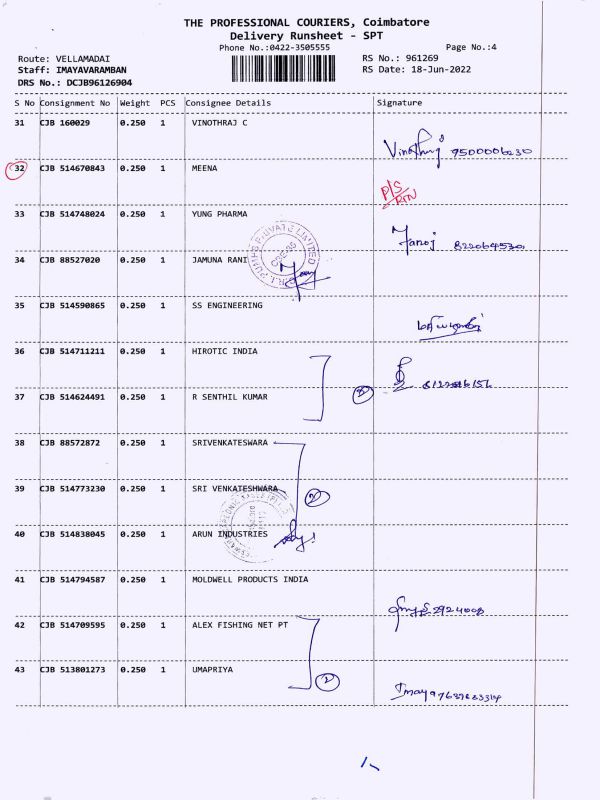 THE PROFESSIONAL COURIERS, Coimbatore
Delivery Runsheet - SPT
Phone No.:0422-3505555
Page No.:4
Route: VELLAMADAI
RS No.: 961269
Staff: IMAYAVARAMBAN
RS Date: 18-Jun-2022
DRS No.: DCJB96126904
S No Consignment No Weight PCS Consignee Details Signature
31 CJB 160029 0.250 1 VINOTHRAJ C
Vinothraj 9500006230
32 CJB 514670843 0.250 1 MEENA
P/S
RTN
33 CJB 514748024 0.250 1 YUNG PHARMA
Manoj
34 CJB 88527020 0.250 1 JAMUNA RANI
PUMPS PRIVATE LIMITED
35 CJB 514590865 0.250 1 SS ENGINEERING
36 CJB 514711211 0.250 1 HIROTIC INDIA
37 CJB 514624491 0.250 1 R SENTHIL KUMAR
2
38 CJB 88572872 0.250 1 SRIVENKATESWARA
39 CJB 514773230 0.250 1 SRI VENKATESHWARA
2
40 CJB 514838045 0.250 1 ARUN INDUSTRIES
41 CJB 514794587 0.250 1 MOLDWELL PRODUCTS INDIA
42 CJB 514709595 0.250 1 ALEX FISHING NET PT
43 CJB 513801273 0.250 1 UMAPRIYA
2